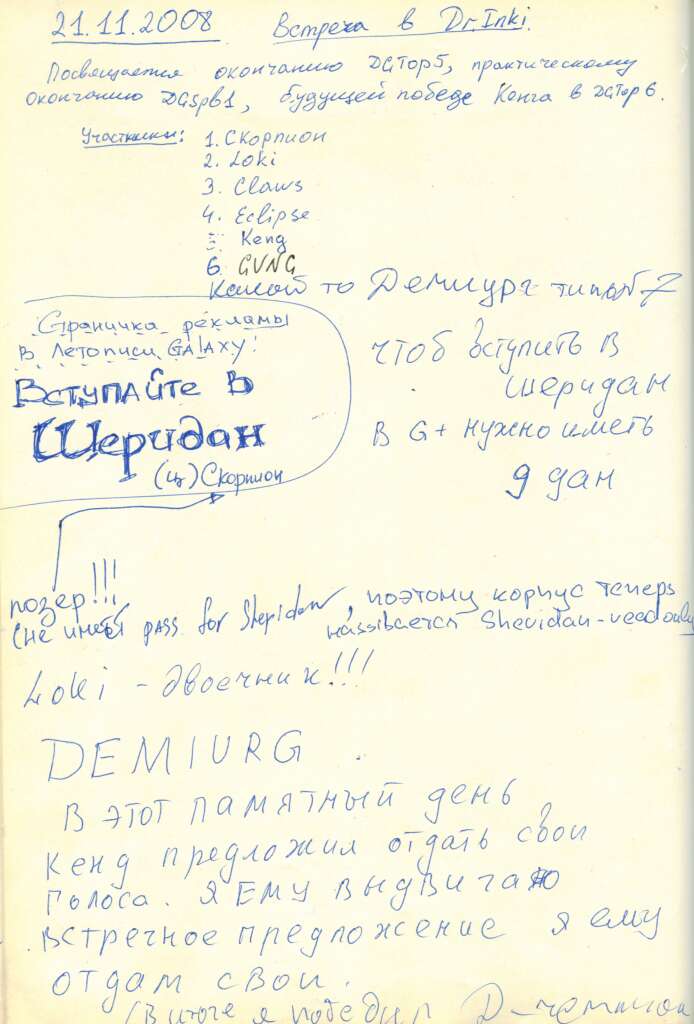 21.11.2008 Встреча в Dr.Inki.
Посвящается окончанию DGTop5, практическому
окончанию DGSpb1, будущей победе Кенга в DGTop6.
Участники: 1. Скорпион
2. Loki
3. Claws
4. Eclipse
5. Keng
6. GVNG
какой то Демиург типа 7
Страничка рекламы
в Летописи GALAXY!
Вступайте в
Шеридан
(ц) Скорпион
чтоб вступить в
шеридан
в G+ нужно иметь
9 дан
позер!!!
(не имеет pass for Sheridan, поэтому корпус теперь
называется Sheridan-read only
Loki - двоечник!!!
DEMIURG.
В этот памятный день
Кенд предложил отдать свои
голоса. Я ему выдвигаю
встречное предложение я ему
отдам свои.
(В итоге я победил D-чемпион